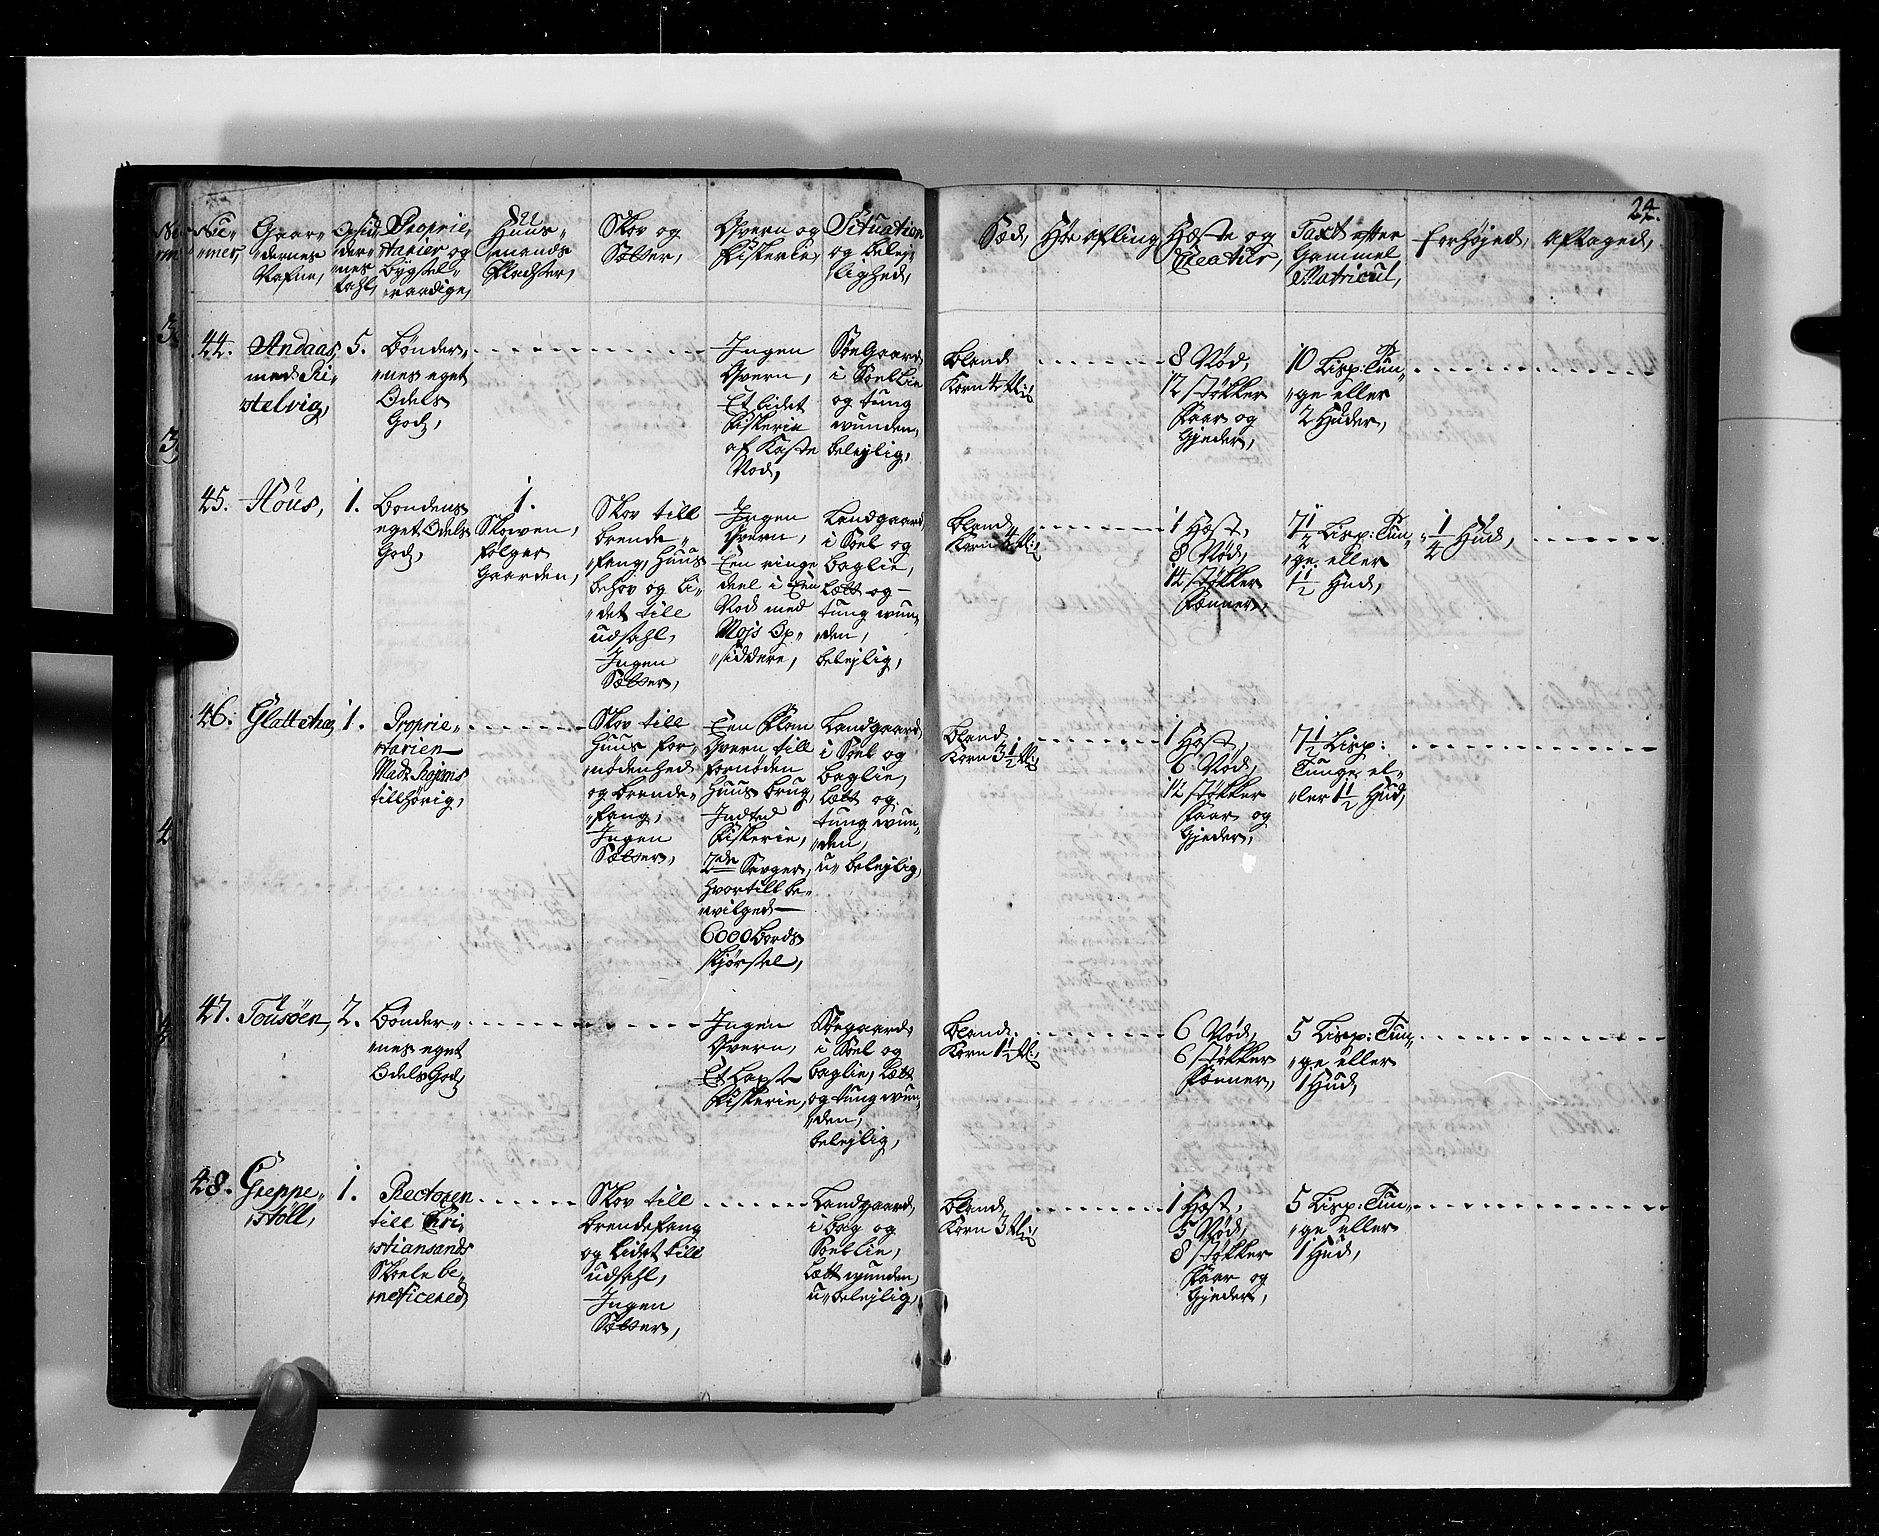 24.
Nu-
mer,
Gaar-
dernes
Nafne,
Opsid-
der-
nes
tahl,
Proprie-
tarier og
bygsel-
raadige,
Huus-
mands
Pladser,
Skov og
Sætter,
Qvern og
Fiskerie,
Situation
og belej-
lighed,
Sæd,
Høe afling,
Hæste og
Creatur,
Taxt efter
Gammel
Matricul,
forhøjed,
aftaged,
44.
Andaas,
med Ri-
stelvig,
5.
Bønder-
nes eget
Odels
God,
Ingen
Qvern,
Et lidet
Fiskerie
af Kaste
Nod,
SøeGaard
i Soellie
og tung
wunden,
belejlig,
bland
Korn 4 tl:
8 Nød,
12 støkker
Faar og
Gjeder,
10 Lisp: Tun-
ge eller
2 Huder,
45.
Høus,
1.
Bondens
eget Odels
God,
1.
Skowen,
følger
Gaarden,
Skov till
brende-
fang, Huus
behov og li-
det till
udsahl,
Ingen
Sætter,
Ingen
Qvern,
Een ringe
deel i Een
Nod med
Mojs Op-
siddere,
Landgaard
i Soel og
baglie,
Lætt og
tung wun-
den,
belejlig,
bland
Korn 4 tl:
1 Hæst,
8 Nød,
14 støkker
Fænner,
7½ Lisp: Tun-
ge eller
1½ Hud,
¼ Hud,
46.
Glattetræ,
1.
Proprie-
tarien
Mads
tillhørig,
Skov till
Huus for-
nødenhed
og brende-
fang,
Ingen
Sætter,
Een Flom
Qvern till
fornøden
Huus brug,
Intet
Fiskerie,
2de Sauger,
hvortill be-
wilged
6000 bords
skjørsel,
Landgaard
i Soel og
baglie,
Lætt og
tung wun-
den,
u-belejlig,
bland
Korn 3½ tl:
1 Hæst,
6 Nød,
12 støkker
Faar og
Gjeder,
7½ Lisp:
Tunge el-
ler 1½ Hud,
47.
Tousøen,
2.
Bønder-
nes eget
OdelsGod,
Ingen
Qvern,
Et Laxe
Fiskerie,
Søegaard
i Soel og
baglie, Lætt
og tung wun-
den,
belejlig,
bland
Korn 1½ tl:
6 Nød,
6 støkker
Fænner,
5 Lisp: Tun-
ge eller
1 Hud,
48.
Greppe-
støll,
1.
Rectoren
till Chri-
stiansands
Skoele be-
neficered,
Skov till
brendefang
og Lidet till
udsahl,
Ingen
Sætter,
Landgaard
i bag og
Soellie,
Lætt wunden,
u-belejlig,
bland
Korn 3 tl:
1 Hæst,
5 Nød,
8 støkker
Faar og
Gjeder,
5 Lisp: Tun-
ge eller
1 Hud,